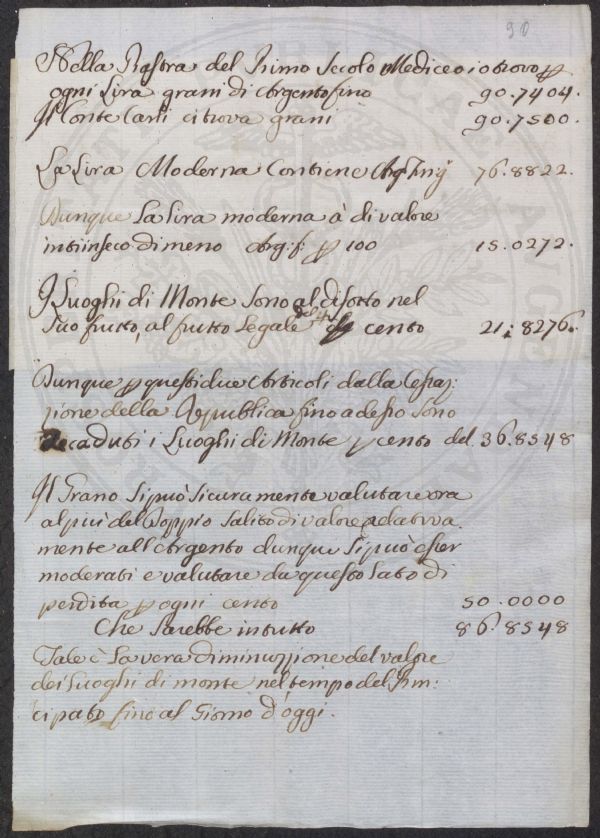 90
Nella Piastra del Primo Secolo Mediceo io trovo p
ogni Lira grani di Argento fino 90.7404.
Il Conte Carli ci trova grani 90.7500.
La Lira Moderna Contiene Arg: fin: 76.8822.
Dunque La Lira moderna à di valore
intrinseco di meno Arg: f: p 100 15.0272.
I Luoghi di Monte Sono al disotto nel
Suo frutto, al frutto Legale del 4 p cento 21.8276.
Dunque p questi due Articoli dalla Cessaz:
zione della Republica fino adesso Sono
decaduti i Luoghi di Monte p cento del 36.8548
Il Grano Si può Sicuramente valutare ora
al più del Doppio Salito di valore relativa
mente all'Argento dunque Si può esser
moderati e valutare da questo Lato di
perdita p ogni cento 50.0000
Che Sarebbe in tutto 86.8548
Tale è La vera diminuzzione del valore
dei Luoghi di monte nel tempo del Prin:
cipato fino al Giorno d'oggi.